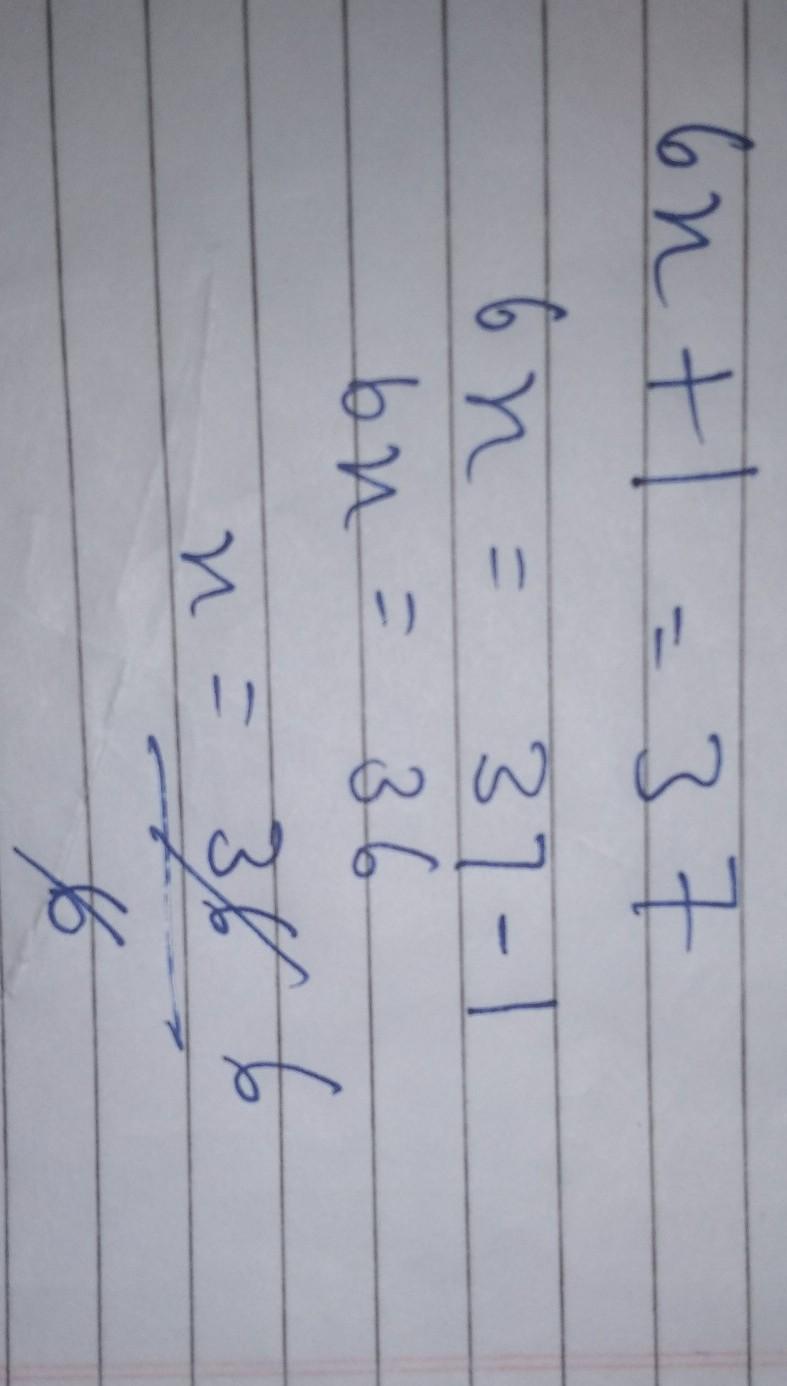 6x + 1 = 37
6x = 37 - 1
6x = 36
x = 36 6
6